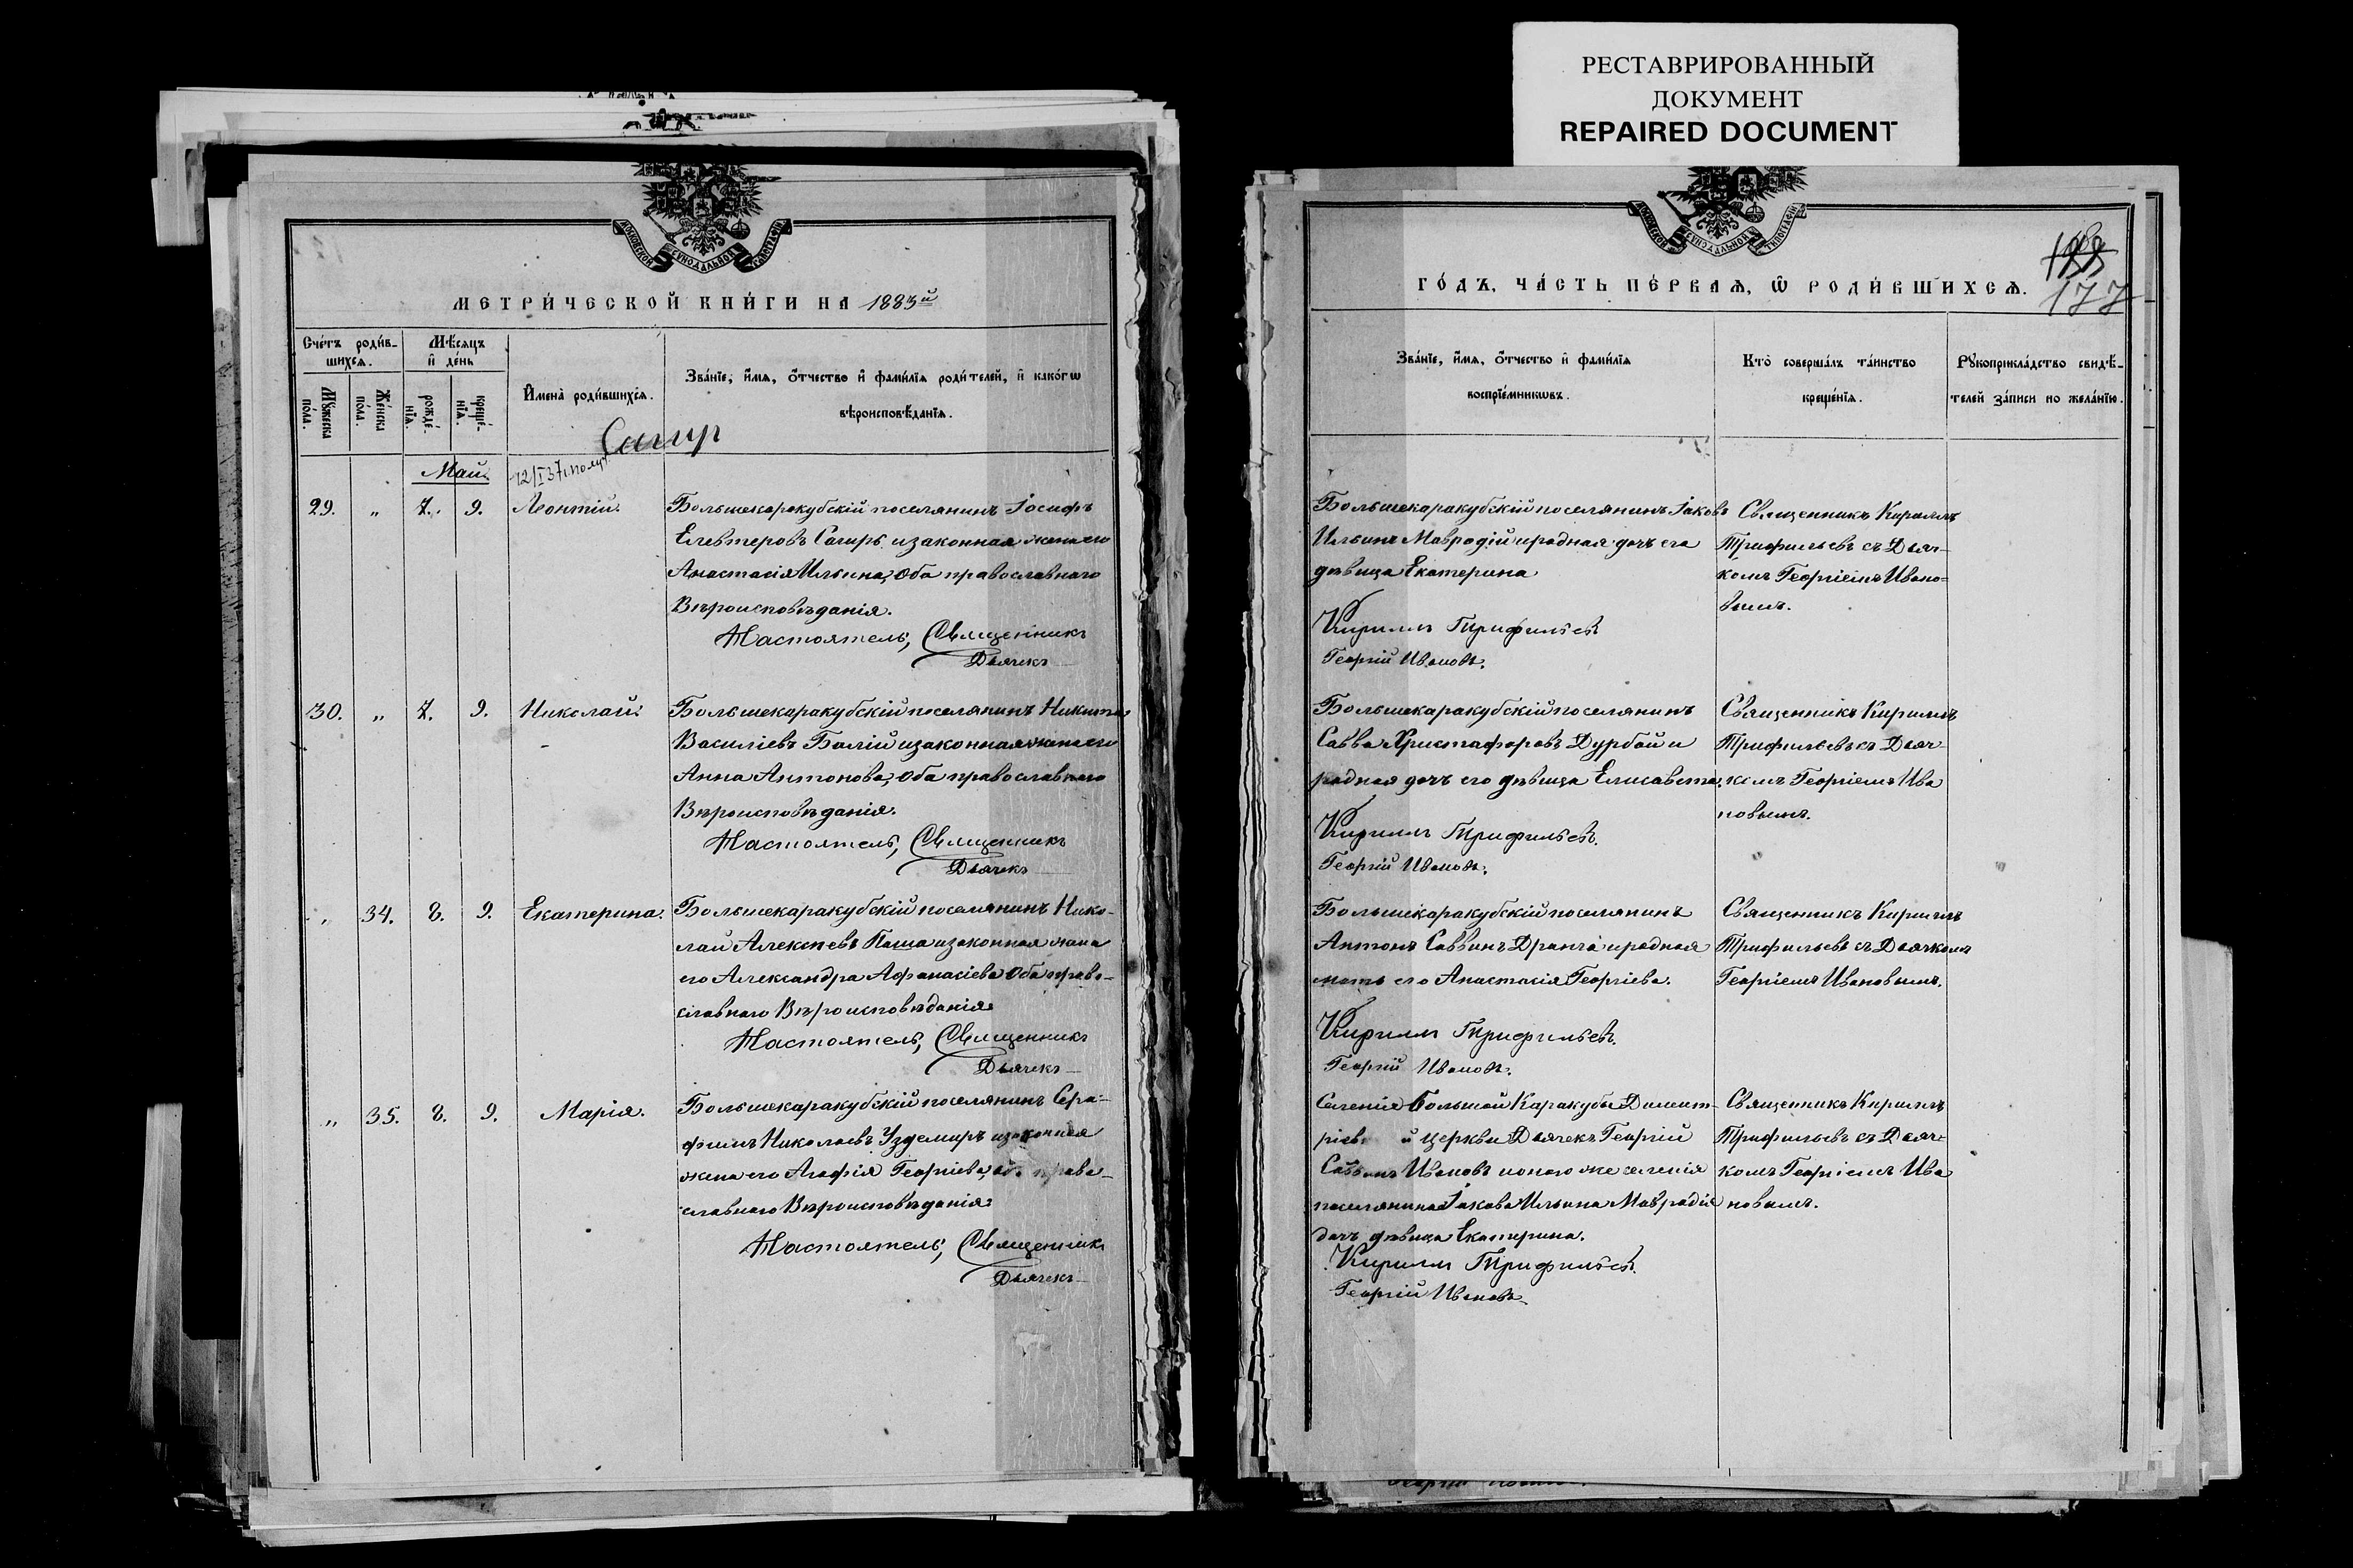 РЕСТАВРИРОВАННЫЙ
ДОКУМЕНТ
REPAIRED DOCUMENT
МОСКОВСКОЙ СѴНОДАЛЬНОЙ ТѴПОГРАФІИ
МЕТРИ́ЧЕСКОЙ КНИ́ГИ НА 1883й
Сче́тъ роди́в-
шихсѧ.
Мѣ́сѧцъ
и҆ де́нь
Мꙋжеска
по́ла.
Же́нска
по́ла.
рожде́-
нїѧ.
креще́-
нїѧ.
И҆мена̀ роди́вшихсѧ.
Зва́нїе, и҆́мѧ, ѻ҆́тчество и҆ фами́лїѧ роди́телей, и҆ како́гѡ
вѣроисповѣ́данїѧ.
Сагир
Май.
29. „ 7. 9. Леонтій.
Большекаракубскій поселянинъ Іосифъ
Елевтеровъ Сагиръ и законная жена его
Анастасія Ильина, оба православнаго
Вѣроисповѣданія.
Настоятель, Священникъ
Дьячекъ
30. „ 7. 9. Николай.
Большекаракубскій поселянинъ Никита
Василіевъ Балій и законная жена его
Анна Антонова, оба православнаго
Вѣроисповѣданія.
Настоятель, Священникъ
Дьячекъ
„ 34. 8. 9. Екатерина.
Большекаракубскій поселянинъ Нико-
лай Алексѣевъ Паша и законная жена
его Александра Афанасіева оба право-
славнаго Вѣроисповѣданія.
Настоятель, Священникъ
Дьячекъ
„ 35. 8. 9. Марія.
Большекаракубскій поселянинъ Сера-
фимъ Николаевъ Уздемиръ и законная
жена его Агафія Георгіева, оба право-
славнаго Вѣроисповѣданія.
Настоятель, Священникъ
Дьячекъ
МОСКОВСКОЙ СѴНОДАЛЬНОЙ ТѴПОГРАФІИ
ГО́ДЪ, ЧА́СТЬ ПЕ́РВАѦ, Ѡ҆ РОДИ́ВШИХСѦ.
177
Зва́нїе, и҆́мѧ, ѻ҆́тчество и҆ фами́лїѧ
воспрїе́мникѡвъ.
Кто̀ соверша́лъ та́инство
креще́нїѧ.
Рꙋкоприкла́дство свидѣ́-
телей за́писи по жела́нїю.
Большекаракубскій поселянинъ Іаковъ
Ильинъ Мавродій и родная дочъ его
дѣвица Екатерина
Кириллъ Трифильевъ
Георгій Ивановъ.
Священникъ Кириллъ
Трифильевъ съ Дьяч-
комъ Георгіемъ Ивано-
вымъ.
Большекаракубскій поселянинъ
Савва Христофоровъ Дурбай и
родная дочъ его дѣвица Елисавета.
Кириллъ Трифильевъ.
Георгій Ивановъ.
Священникъ Кириллъ
Трифильевъ съ Дьяч-
комъ Георгіемъ Ива
новымъ.
Большекаракубскій поселянинъ
Антонъ Саввинъ Дранга и родная
мать его Анастасія Георгіева.
Кириллъ Трифильевъ.
Георгій Ивановъ.
Священникъ Кириллъ
Трифильевъ съ Дьячкомъ
Георгіемъ Ивановымъ.
Селенія Большой Каракубы Димит-
ріев й церкви Дьячекъ Георгій
Саввинъ Ивановъ и того же селенія
поселянина Іакова Ильина Мавродія
дочъ дѣвица Екатерина.
Кириллъ Трифильевъ.
Георгій Ивановъ.
Священникъ Кириллъ
Трифильевъ съ Дьяч-
комъ Георгіемъ Ива
новымъ.